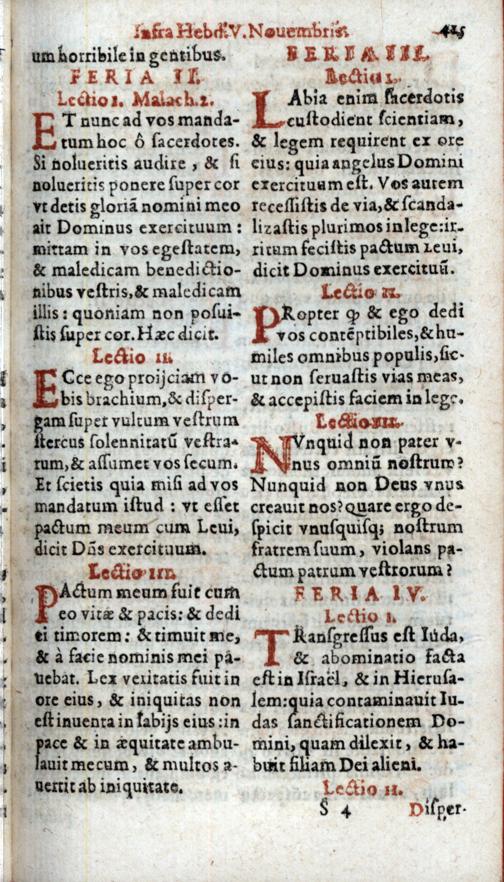 Infra Hebd. V. Nouembris. 425
um horribile in gentibus.
FERIA II.
Lectio I. Malach. 2.
ET nunc ad vos manda-
tum hoc ô sacerdotes.
Si nolueritis audire, & si
nolueritis ponere super cor
vt detis gloriã nomini meo
ait Dominus exercituum:
mittam in vos egestatem,
& maledicam benedictio-
nibus vestris, & maledicam
illis: quoniam non posui-
stis super cor. Hæc dicit.
Lectio II.
ECce ego proijciam vo-
bis brachium, & disper-
gam super vultum vestrum
stercus solennitatũ vestra-
rum, & assumet vos secum.
Et scietis quia misi ad vos
mandatum istud: vt esset
pactum meum cum Leui,
dicit Dñs exercituum.
Lectio III.
PActum meum fuit cum
eo vitæ & pacis: & dedi
ei timorem: & timuit me,
& à facie nominis mei pa-
uebat. Lex veritatis fuit in
ore eius, & iniquitas non
est inuenta in labijs eius: in
pace & in æquitate ambu-
lauit mecum, & multos a-
uertit ab iniquitate.
FERIA III.
Lectio I.
LAbia enim sacerdotis
custodient scientiam,
& legem requirent ex ore
eius: quia angelus Domini
exercituum est. Vos autem
recessistis de via, & scanda-
lizastis plurimos in lege: ir-
ritum fecistis pactum Leui,
dicit Dominus exercituũ.
Lectio II.
PRopter qꝫ & ego dedi
vos contẽptibiles, & hu-
miles omnibus populis, sic-
ut non seruastis vias meas,
& accepistis faciem in lege.
Lectio III.
NVnquid non pater v-
nus omniũ nostrum?
Nunquid non Deus vnus
creauit nos? quare ergo de-
spicit vnusquisq; nostrum
fratrem suum, violans pa-
ctum patrum vestrorum?
FERIA IV.
Lectio I.
TRansgressus est Iuda,
& abominatio facta
est in Israël, & in Hierusa-
lem: quia contaminauit Iu-
das sanctificationem Do-
mini, quam dilexit, & ha-
buit filiam Dei alieni.
Lectio II.
S 4 Disper-